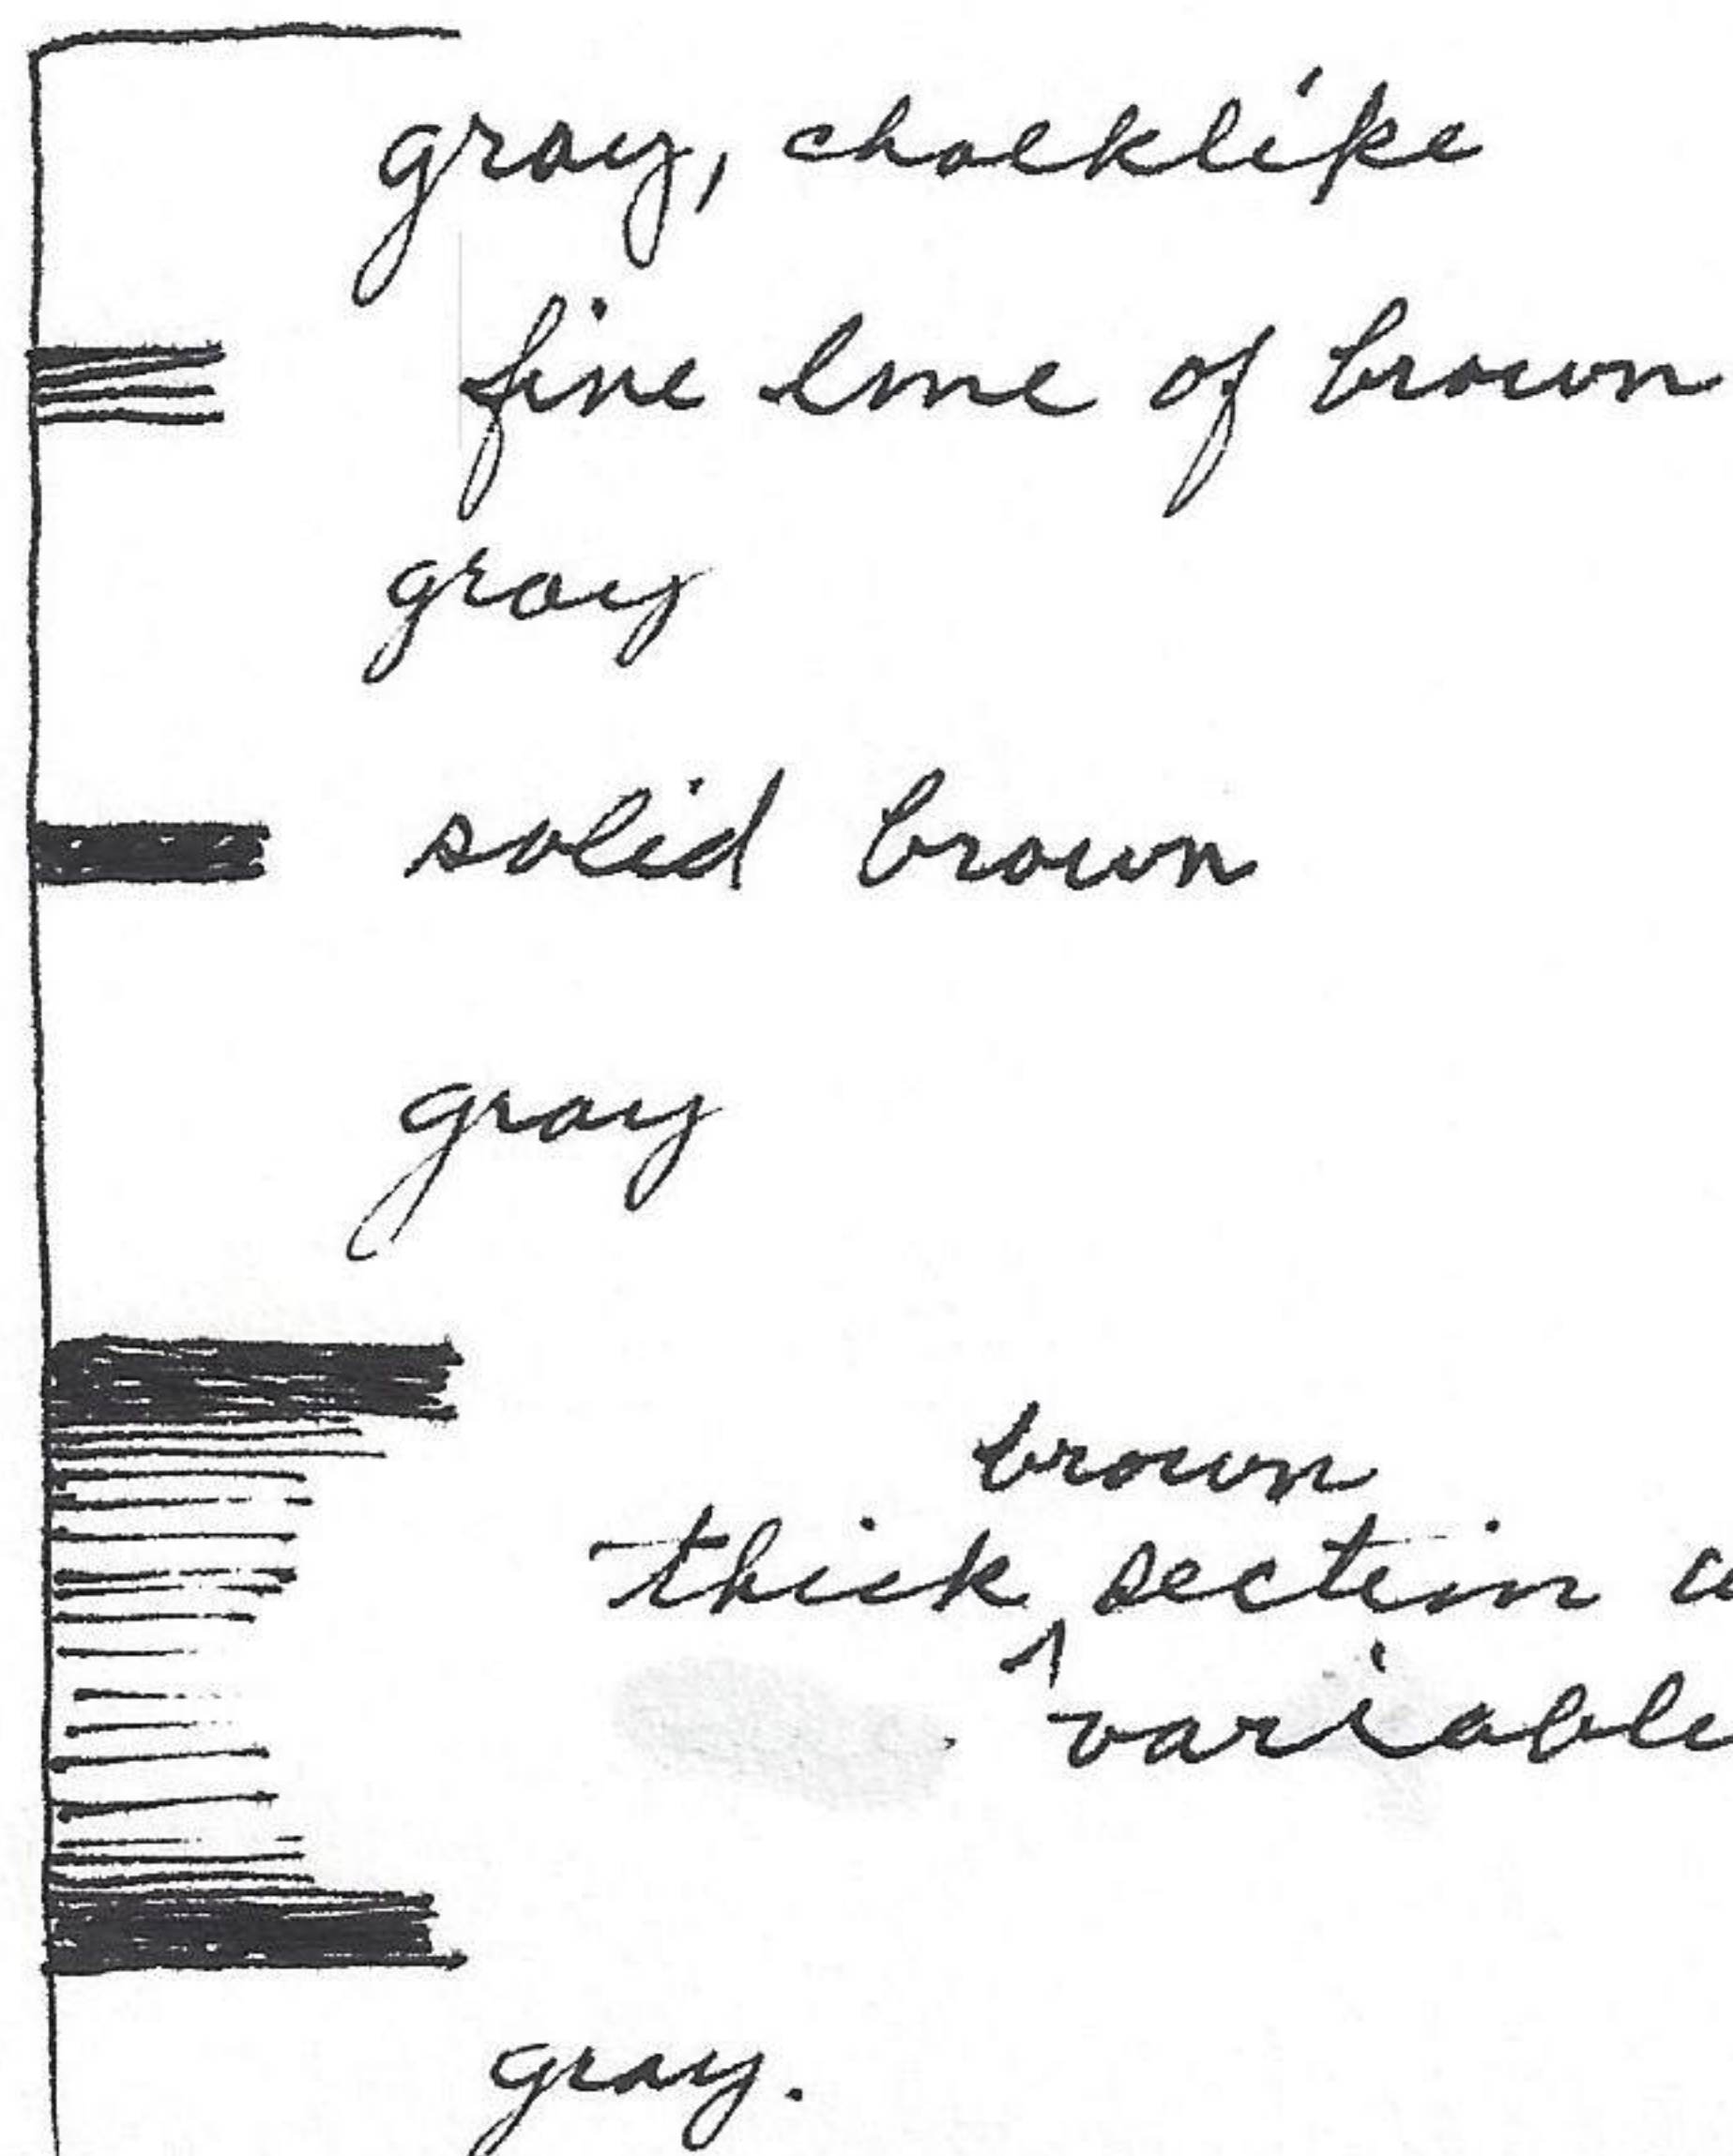 gray, chalklike
fine line of brown
gray
solid brown
gray
brown
thick section
variable
gray.